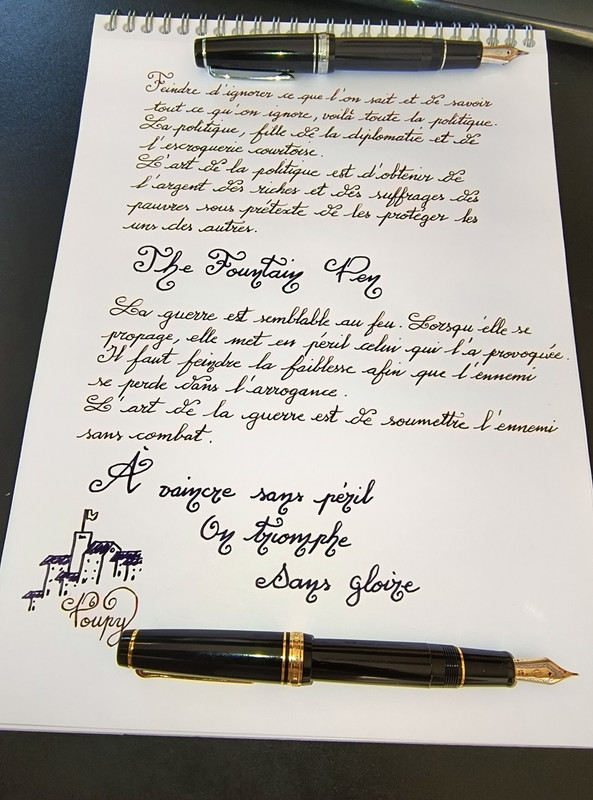 Feindre d'ignorer ce que l'on sait et de savoir
tout ce qu'on ignore, voilà toute la politique.
La politique, fille de la diplomatie et de
l'escroquerie courtoise.
L'art de la politique est d'obtenir de
l'argent des riches et des suffrages des
pauvres sous prétexte de les protéger les
uns des autres.
The Fountain Pen
La guerre est semblable au feu. Lorsqu'elle se
propage, elle met en péril celui qui l'a provoquée.
Il faut feindre la faiblesse afin que l'ennemi
se perde dans l'arrogance.
L'art de la guerre est de soumettre l'ennemi
sans combat.
À vaincre sans péril
On triomphe
Sans gloire
Poupy